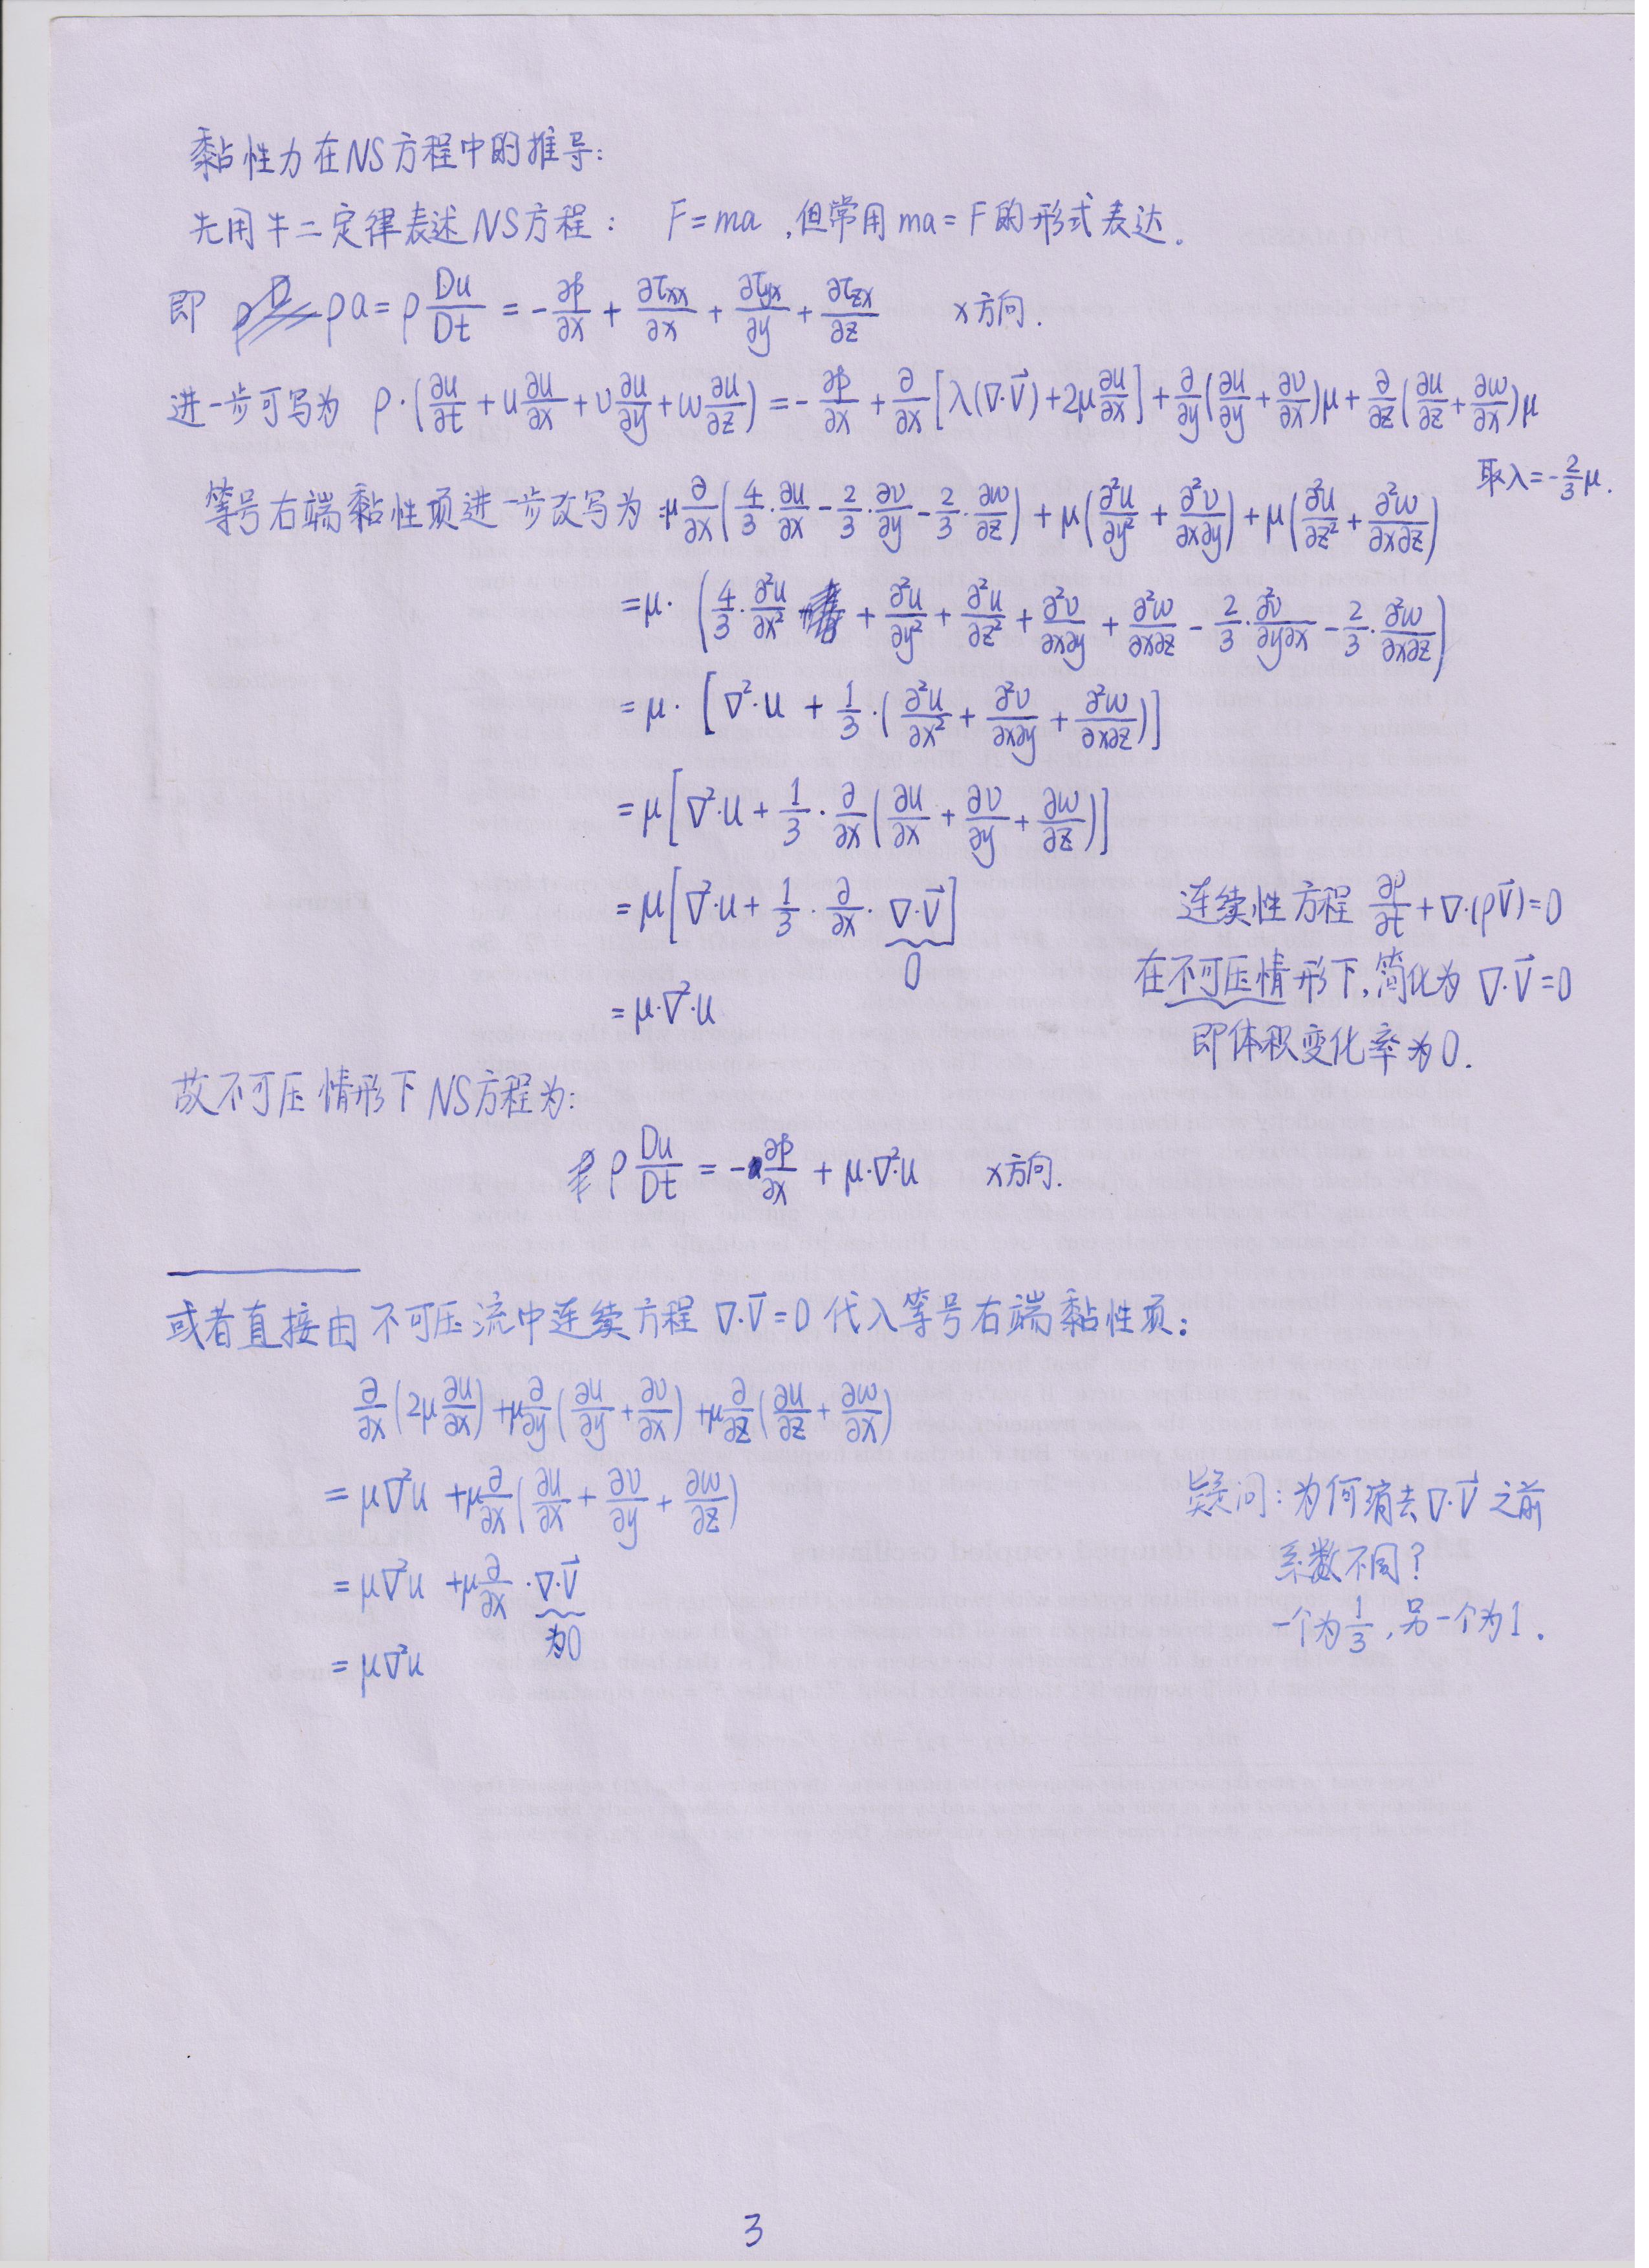 黏性力在NS方程中的推导:
先用牛二定律表述NS方程: F=ma ,但常用ma=F的形式表达。
即 ρa=ρ Du/Dt = -∂p/∂x + ∂τxx/∂x + ∂τyx/∂y + ∂τzx/∂z x方向.
进一步可写为 ρ·(∂u/∂t + u ∂u/∂x + υ ∂u/∂y + w ∂u/∂z) = -∂p/∂x + ∂/∂x [λ(∇·V⃗)+2μ ∂u/∂x] + ∂/∂y (∂u/∂y + ∂υ/∂x)μ + ∂/∂z (∂u/∂z + ∂w/∂x)μ
取λ=-2/3 μ.
等号右端黏性项进一步改写为:μ ∂/∂x (4/3·∂u/∂x - 2/3·∂υ/∂y - 2/3·∂w/∂z) + μ(∂²u/∂y² + ∂²υ/∂x∂y) + μ(∂²u/∂z² + ∂²w/∂x∂z)
=μ·(4/3·∂²u/∂x² + ∂²u/∂y² + ∂²u/∂z² + ∂²υ/∂x∂y + ∂²w/∂x∂z - 2/3·∂²υ/∂y∂x - 2/3·∂²w/∂x∂z)
=μ·[∇²·u + 1/3·(∂²u/∂x² + ∂²υ/∂x∂y + ∂²w/∂x∂z)]
=μ[∇²·u + 1/3·∂/∂x(∂u/∂x + ∂υ/∂y + ∂w/∂z)]
=μ[∇²·u + 1/3·∂/∂x·∇·V⃗]
0
=μ·∇²·u
连续性方程 ∂ρ/∂t + ∇·(ρV⃗)=0
在不可压情形下,简化为 ∇·V⃗=0
即体积变化率为0.
故不可压情形下NS方程为:
ρ Du/Dt = -∂p/∂x + μ·∇²·u x方向.
或者直接由不可压流中连续方程 ∇·V⃗=0 代入等号右端黏性项:
∂/∂x(2μ ∂u/∂x) + μ ∂/∂y(∂u/∂y + ∂υ/∂x) + μ ∂/∂z(∂u/∂z + ∂w/∂x)
= μ∇²u + μ ∂/∂x(∂u/∂x + ∂υ/∂y + ∂w/∂z)
= μ∇²u + μ ∂/∂x·∇·V⃗
为0
= μ∇²u
疑问:为何消去∇·V⃗之前
系数不同?
一个为1/3,另一个为1.
3